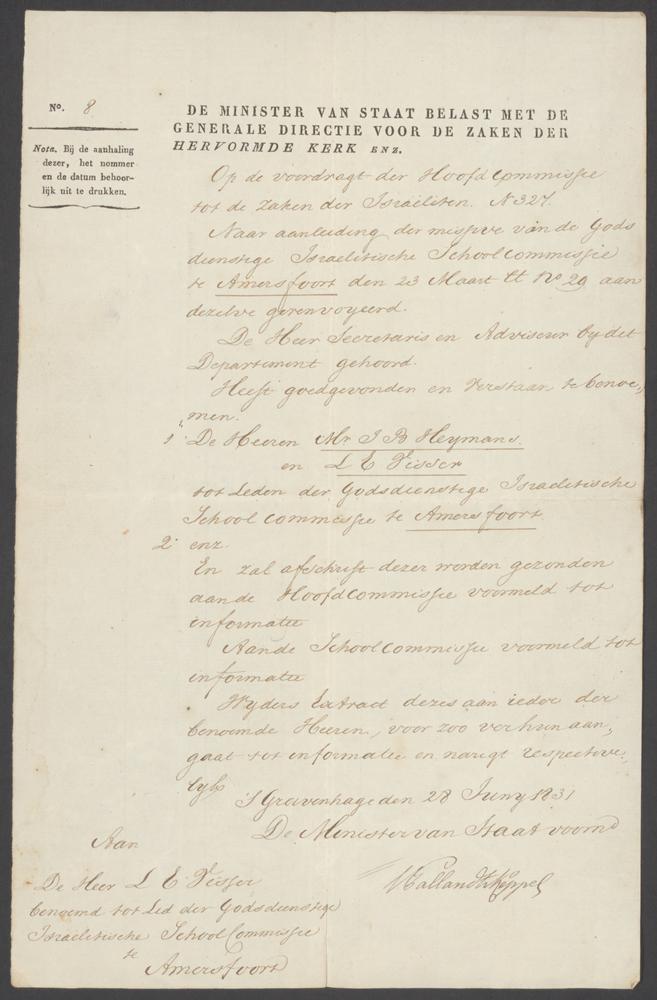 No. 8
Nota. Bij de aanhaling
dezer, het nommer
en de datum behoor-
lijk uit te drukken.
DE MINISTER VAN STAAT BELAST MET DE
GENERALE DIRECTIE VOOR DE ZAKEN DER
HERVORMDE KERK ENZ.
Op de voordragt der Hoofd Commissie
tot de zaken der Israeliten. N 327.
Naar aanleiding der missive van de Gods
dienstige Israelitische School Commissie
te Amersfoort den 23 Maart ll No 29 aan
dezelve gerenvoyeerd.
De Heer Secretaris en Adviseur by dit
Departement gehoord.
Heeft goedgevonden en Verstaan te benoe„
„men.
1° De Heeren Mr. I B Heymans.
en L E Visser
tot Leden der Godsdienstige Israelitische
School Commissie te Amersfoort
2° enz.
En zal afschrift dezer worden gezonden
aan de Hoofd Commissie voormeld tot
informatie
Aan de School Commissie voormeld tot
informatie
Wyders Extract dezes aan ieder der
benoemde Heeren, voor zoo ver hun aan„
gaat tot informatie en narigt respective„
lyk
S Gravenhage den 28 Juny 1831
De Minister van Staat voornd
Aan
De Heer L E Visser
benoemd tot Lid der Godsdienstige
Israelitische School Commissie
te
Amersfoort